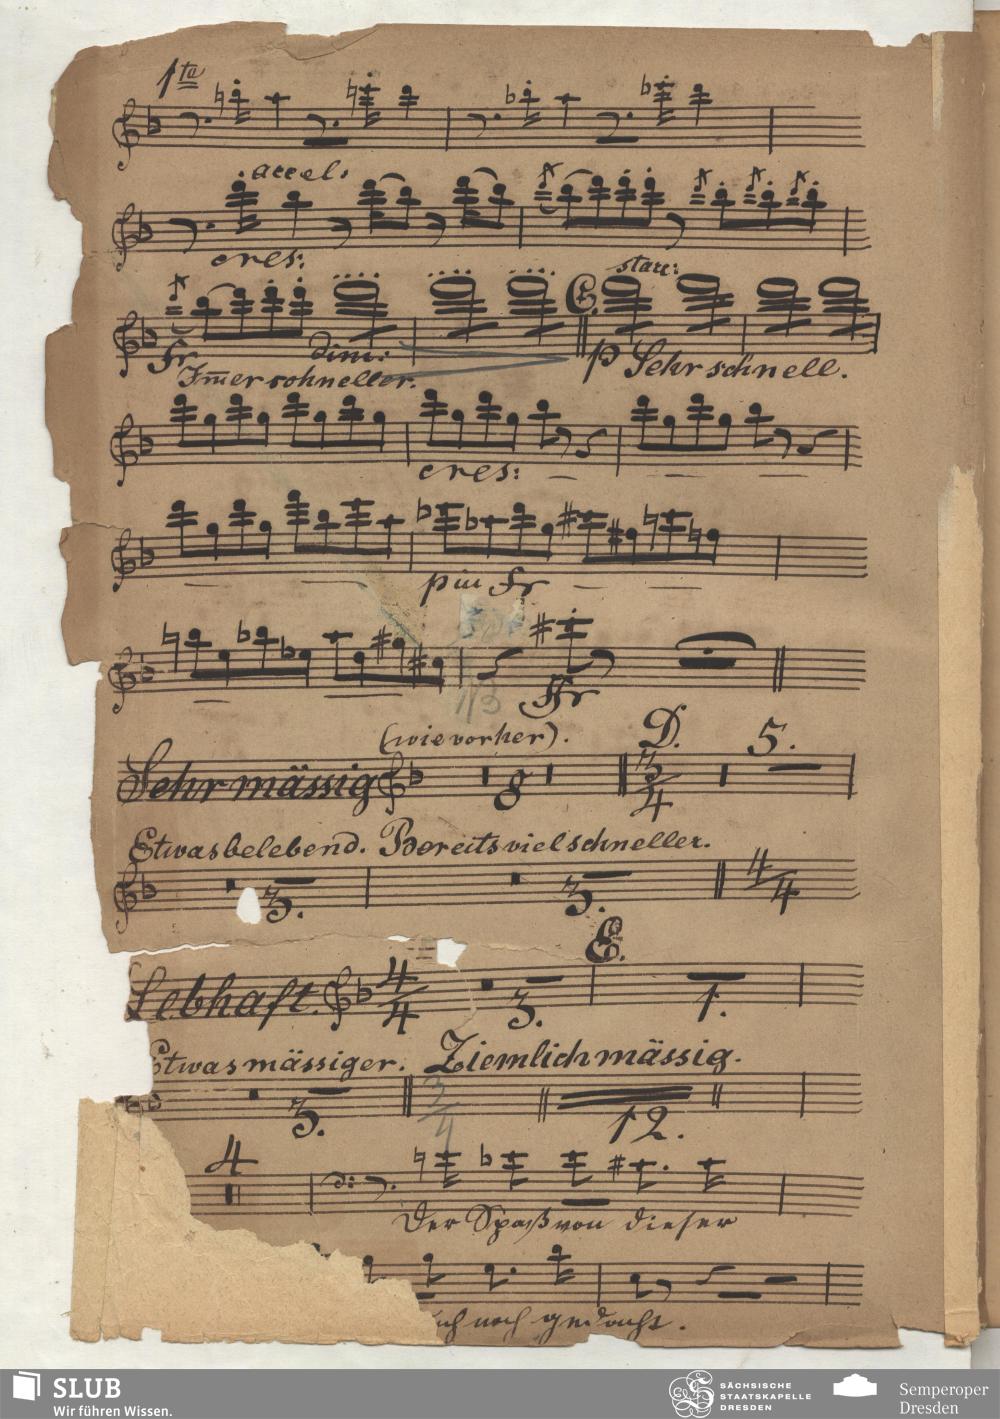 1ta
accel.
cres:
stacc:
C.
fr
dim:
p Sehr schnell.
Im̄er schneller.
cres:
piu fr
1/3
ffr
(wie vorher).
D.
5.
Sehr mässig
8
3/4
Etwas belebend. Bereits viel schneller.
3.
3.
4/4
E.
Lebhaft.
4/4
3.
1.
Etwas mässiger. Ziemlich mässig.
3.
3/4
12.
4
Der Spaß von dieser
noch gedacht.
SLUB
Wir führen Wissen.
SÄCHSISCHE
STAATSKAPELLE
DRESDEN
Semperoper
Dresden